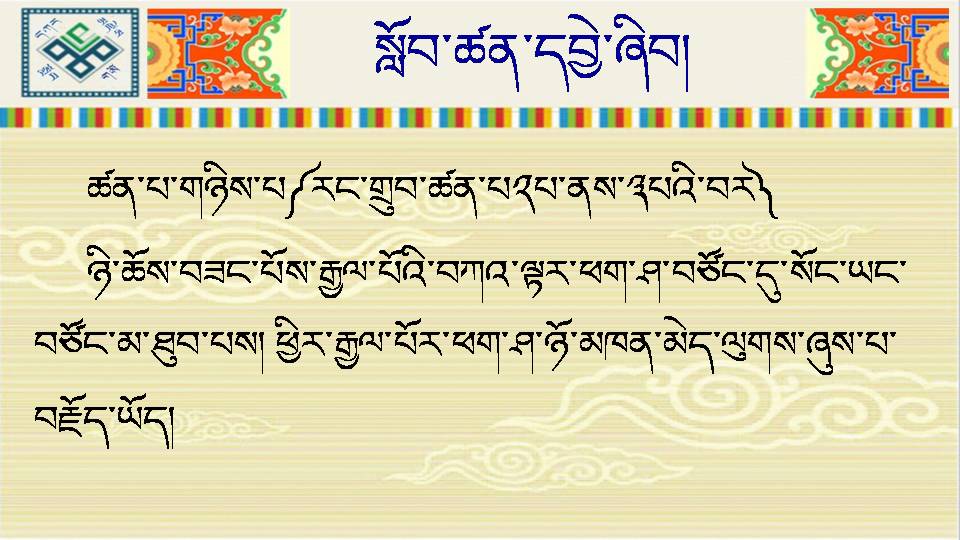 སློབ་ཚན་དབྱེ་ཞིབ།
ཚན་པ་གཉིས་པ༼རང་གྲུབ་ཚན་པ༢པ་ནས་༣པའི་བར༽
ཉི་ཆོས་བཟང་པོས་རྒྱལ་པོའི་བཀའ་ལྟར་ཕག་ཤ་བཙོང་དུ་སོང་ཡང་
བཙོང་མ་ཐུབ་པས། ཕྱིར་རྒྱལ་པོར་ཕག་ཤ་ཉོ་མཁན་མེད་ལུགས་ཞུས་པ་
བརྗོད་ཡོད།